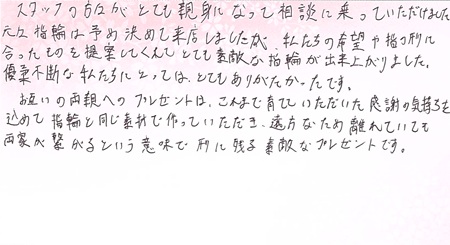 スタッフの方々がとても親身になって相談に乗っていただけました
元々指輪は予め決めて来店しましたが、私たちの希望や指の形に
合ったものを提案してくれてとても素敵な指輪が出来上がりました。
優柔不断な私たちにとっては、とてもありがたかったです。
お互いの両親へのプレゼントは、これまで育てていただいた感謝の気持ちを
込めて指輪と同じ素材で作っていただき、遠方なため離れていても
両家が繋がるという意味で形に残る素敵なプレゼントです。